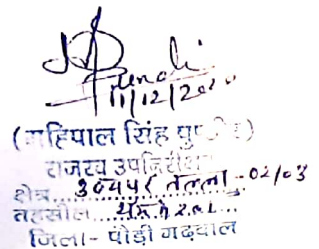 11/12/2020
(महिपाल सिंह पुण्डीर)
राजस्व उपनिरीक्षक
क्षेत्र...उदयपुर तल्ला-02/03
तहसील...
जिला- पौड़ी गढ़वाल